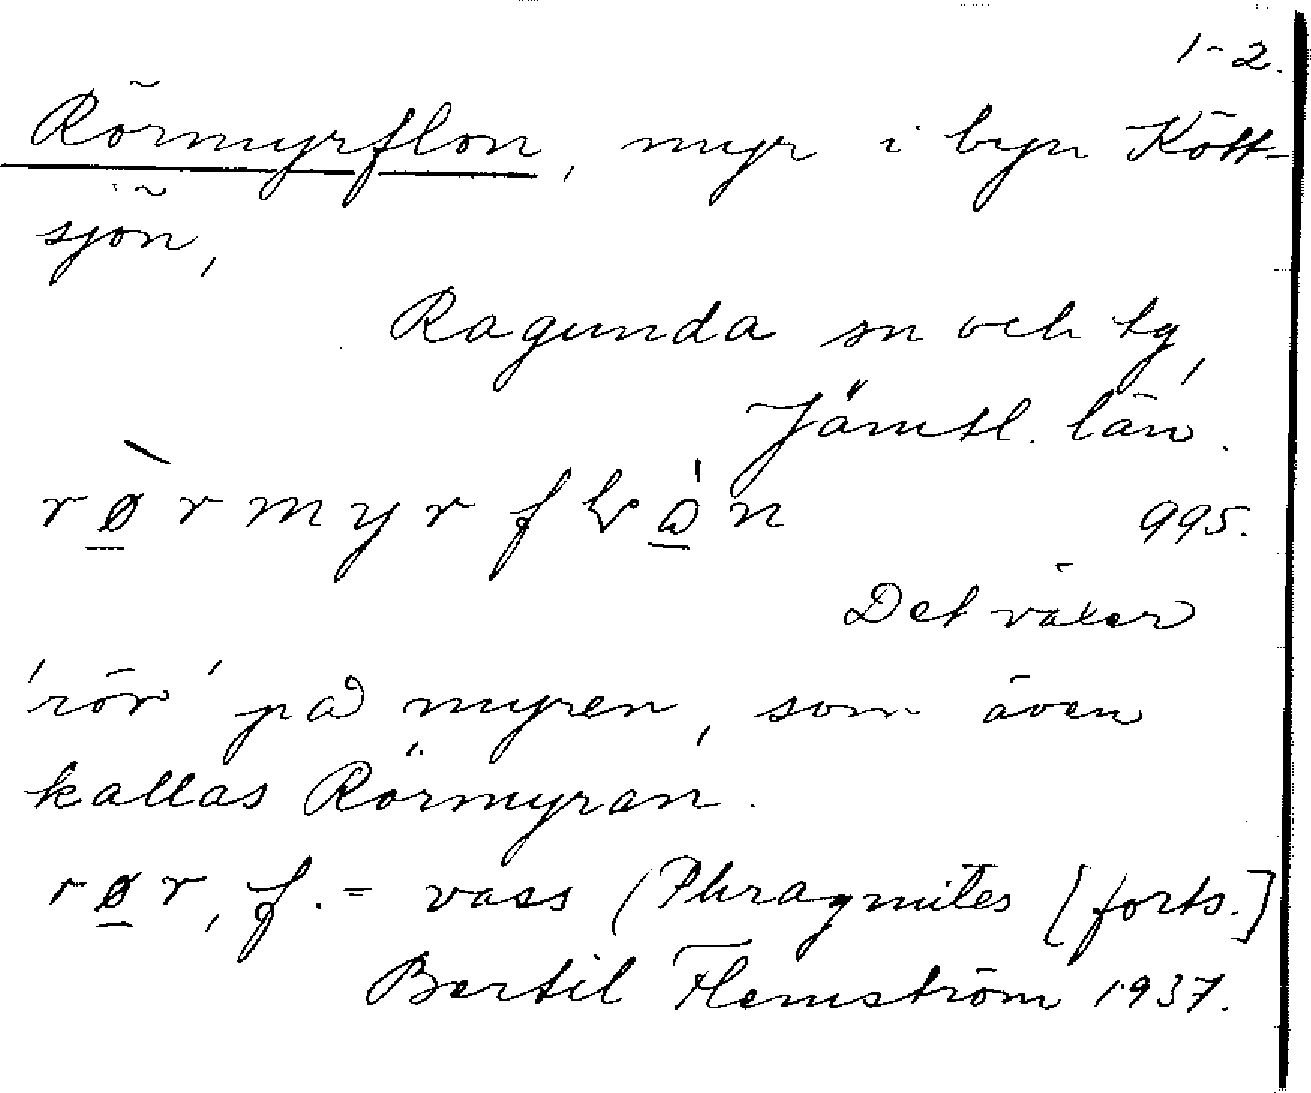 1-2.
Rörmyrflon, myr i byn Kött-
sjön,
Ragunda sn och tg,
Jämtl. län.
rø̠̀rmyrfɽǻ̠n 995.
Det växer
'rör' på myren, som även
kallas Rörmyran.
rø̠r, f. = vass (Phragmites [forts.]
Bertil Flemström 1937.